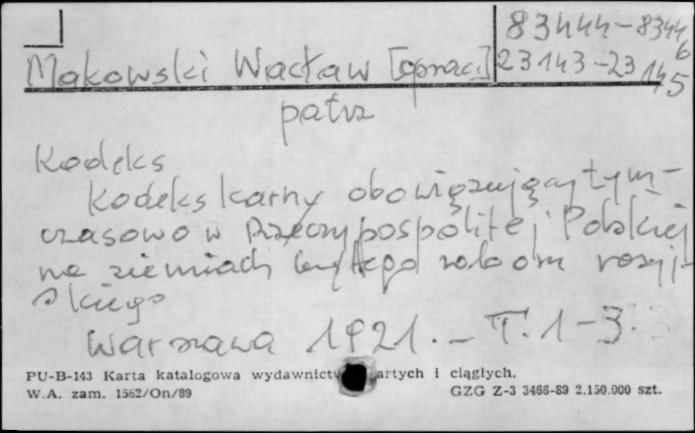 83444-83446
Makowski Wacław [oprac.] 23143-23145
patrz
Kodeks
Kodeks karny obowiązujący tym-
czasowo w Rzeczypospolitej Polskiej
na ziemiach byłego zaboru rosyj-
skiego
Warszawa 1921.- T. 1-3.
PU-B-143 Karta katalogowa wydawnictw zwartych i ciągłych.
W.A. zam. 1562/On/89 GZG Z-3 3466-89 2.150.000 szt.